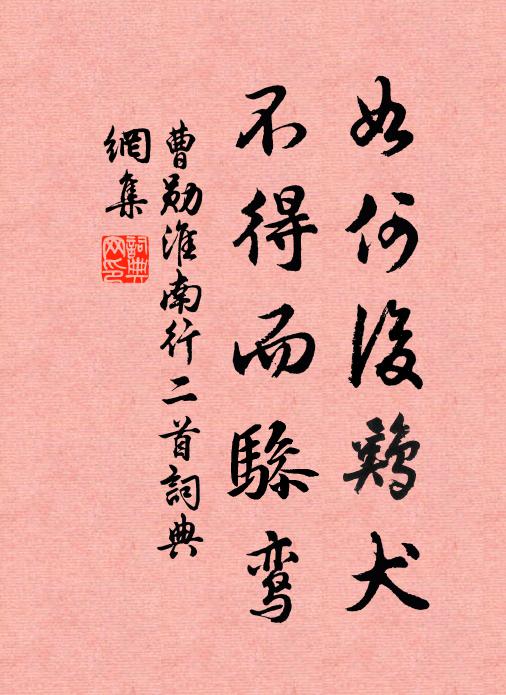 如何後鷄犬
不得而驂鸞
曹勛淮南行二首詞典
網集
詞典
网印